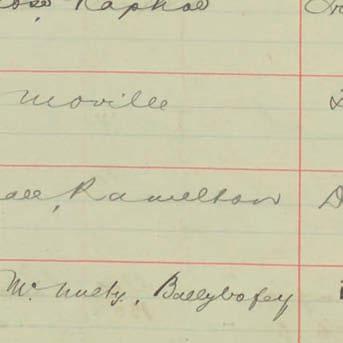 Raphoe
Moville
Ramelton
Mc Nulty, Ballybofey